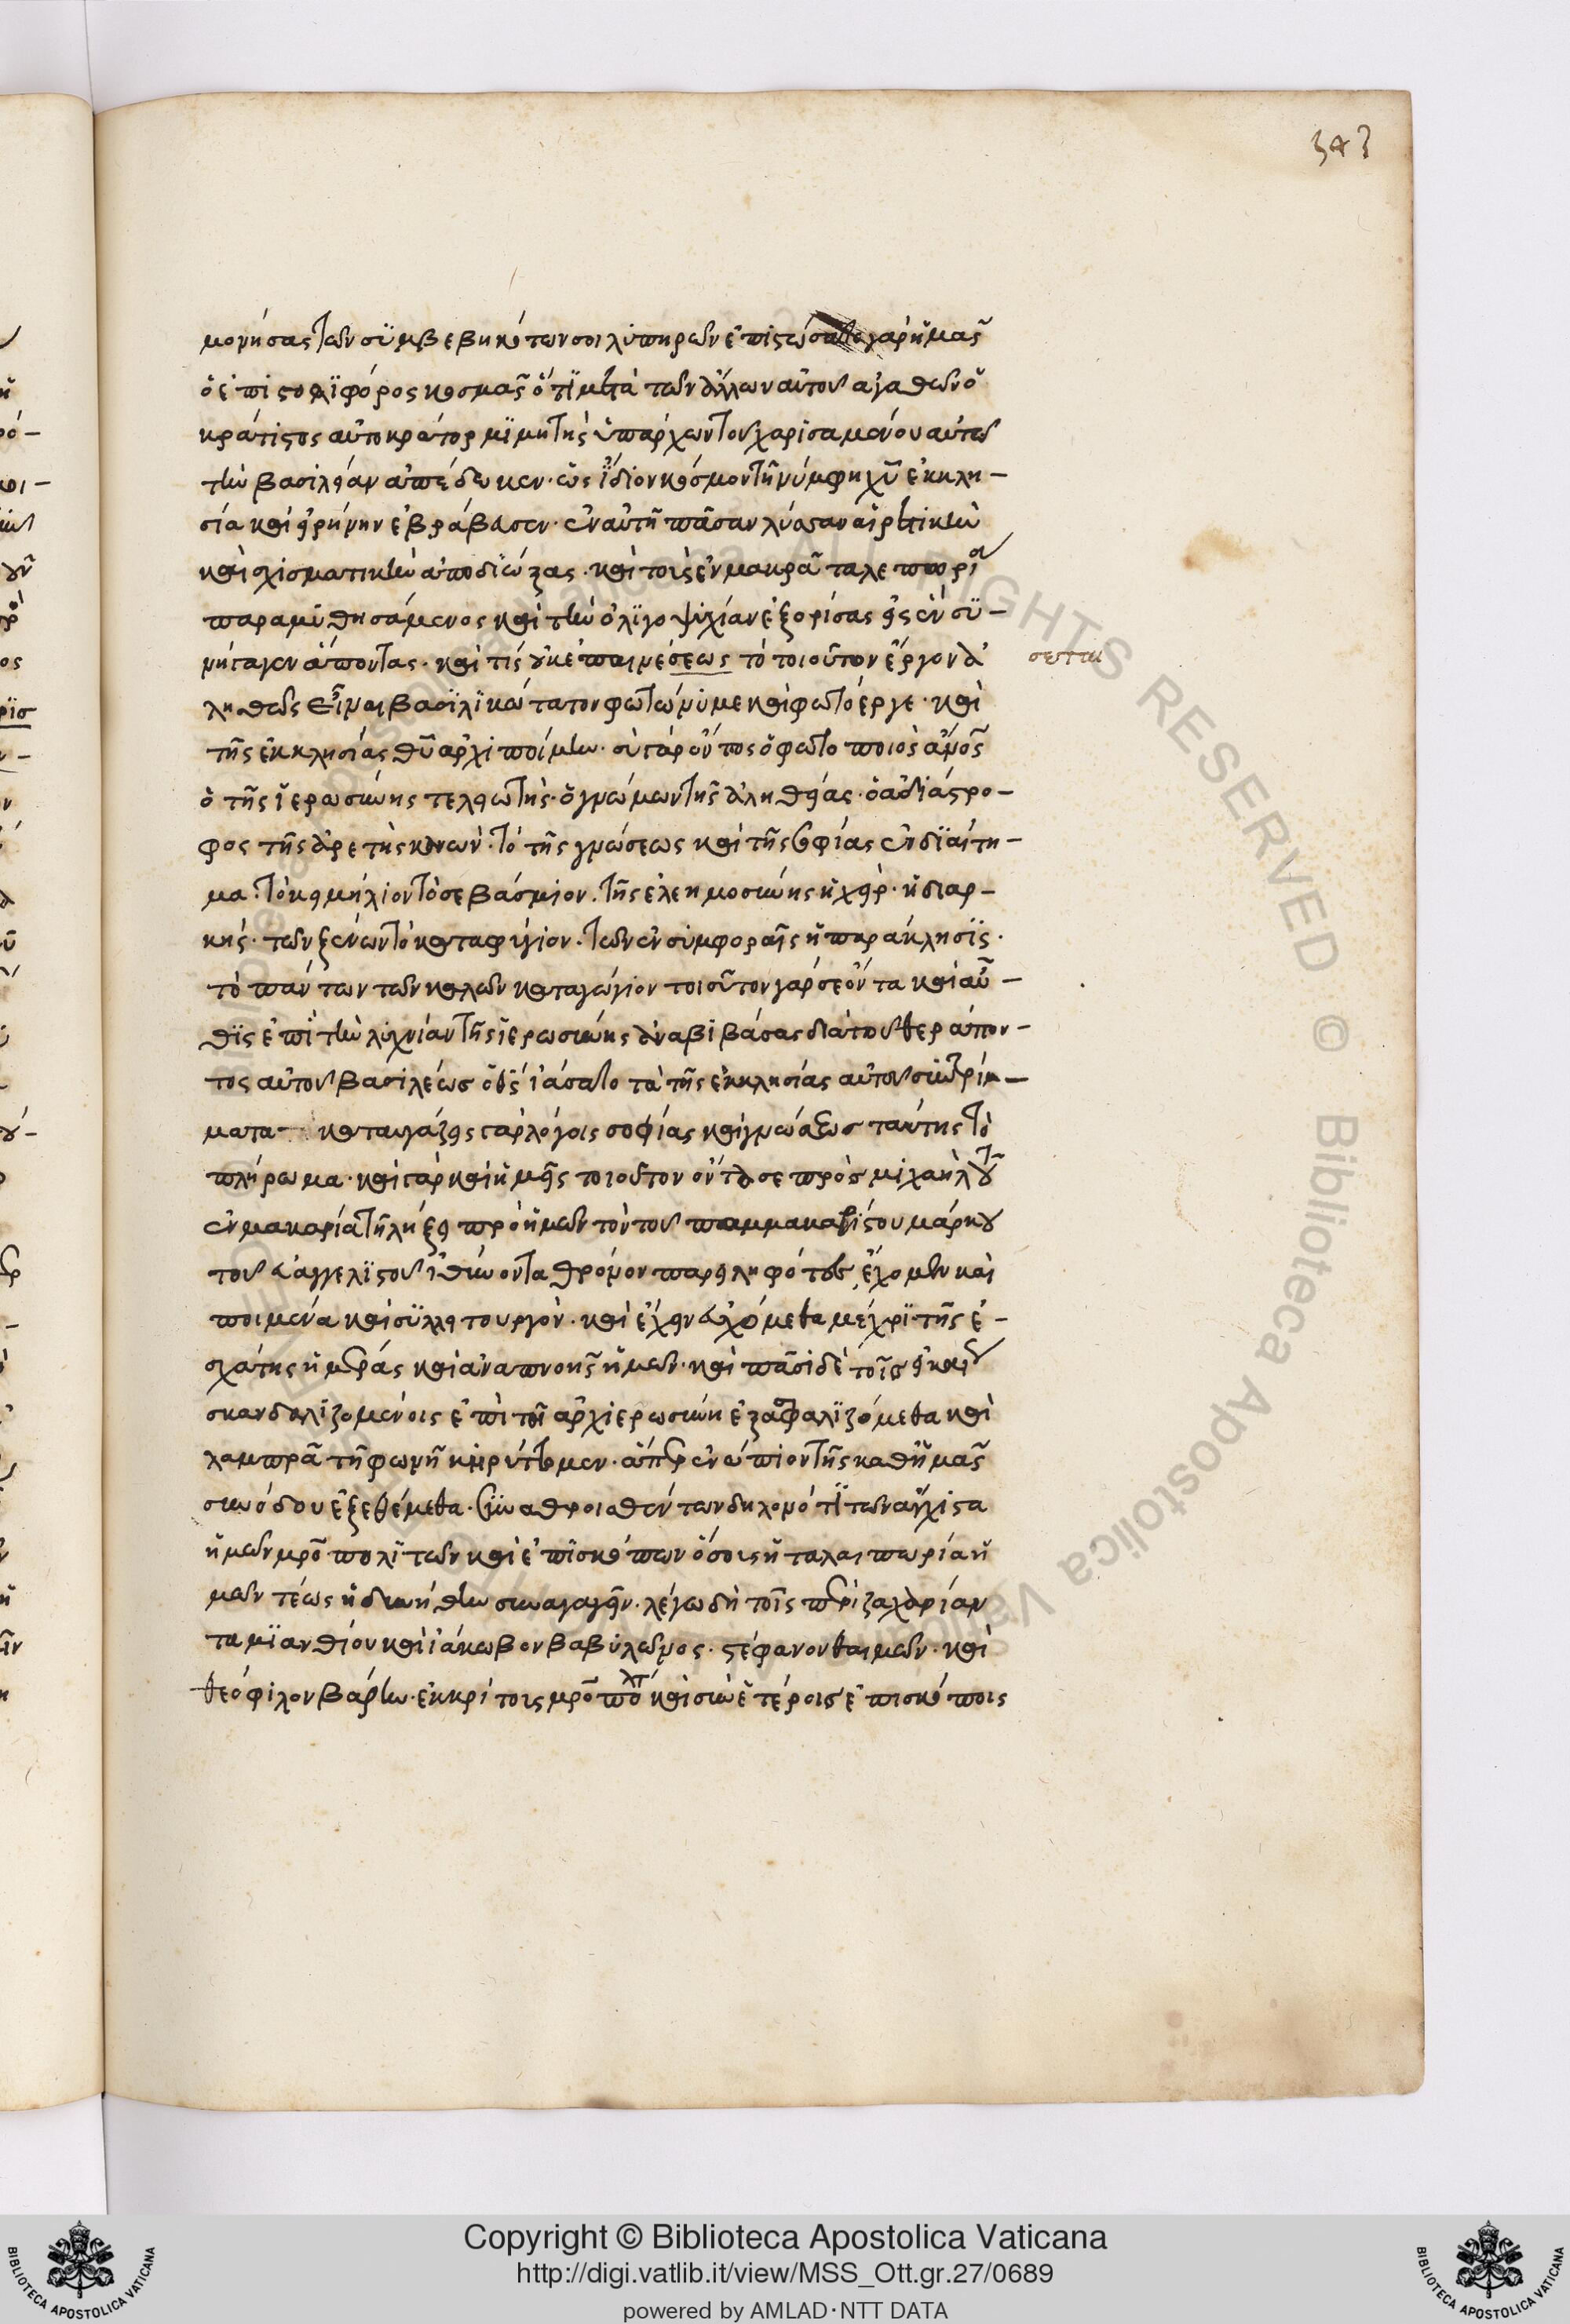 343
μονήσας τῶν συμβεβηκότων σοι λυπηρῶν ἐπιστώσατο γὰρ ἡμᾶς
ὁ ἐπιστολιφόρος κοσμᾶς ὅτι μετὰ τῶν ἄλλων αὐτοῦ ἀγαθῶν ὁ
κράτιστος αὐτοκράτορ μιμητὴς ὑπάρχων τοῦ χαρισαμένου αὐτῶ
τὴν βασιλείαν ἀπέδωκεν· ὡς ἴδιον κόσμον τῆ νύμφη χυ ἐκκλη-
σία καὶ εἰρήνην ἐβράβευσεν· ἐν αὐτῆ πᾶσαν λύσσαν αἱρετικὴν
καὶ σχισματικὴν ἀποδιώξας· καὶ τοῖς ἐν μακρᾶ ταλεπωρία
παραμυθησάμενος καὶ τὴν ὀλιγοψυχίαν ἐξορίσας εἰς ἐν συ-
νήταγεν ἅποντας· καὶ τίς οὐκ ἐπαινέσεως τὸ τοιοῦτον ἔργον ἀ
σεται
ληθῶς εἶναι βασιλικώτατον φωτώνυμε καὶ φωτόεργε· καὶ
τῆς ἐκκλησίας θυ ἀρχιποίμην· σὺ γὰρ ὄντος ὁ φωτοποιὸς ἀμνὸς
ὁ τῆς ἱερωσύνης τελειωτής· ὁ γνώμων τῆς ἀληθείας· ὁ ἀδιάστρο-
φος τῆς ἀρετῆς κανών· τὸ τῆς γνώσεως καὶ τῆς σοφίας ἐνδιαίτη-
μα· τὸ κειμήλιον τὸ σεβάσμιον· τῆς ἐλεημοσύνης ἡ χείρ· ἡ διαρ-
κής· τῶν ξένων τὸ καταφύγιον· τῶν ἐν συμφοραῖς ἡ παράκλησις·
τὸ πάντων τῶν καλῶν καταγώγιον τοιοῦτον γάρ σε ὄντα καὶ αὖ-
θις ἐπὶ τὴν λυχνίαν τῆς ἱερωσύνης ἀναβιβάσας διὰ τοῦ θεράπον-
τος αὐτοῦ βασιλέως ὁ θς ἰάσατο τὰ τῆς ἐκκλησίας αὐτοῦ συντρίμ-
ματα καταυγάζεις γὰρ λόγοις σοφίας καὶ γνώσεως ταύτης τὸ
πλήρωμα· καὶ γὰρ καὶ ἡμεῖς τοιοῦτον ὄντα σε πρὸς μιχαὴλ τοῦ
ἐν μακαρία τῆ λήξει πρὸ ἡμῶν τὸν τοῦ παμμακαρίστου μάρκου
τοῦ εὐαγγελιστοῦ ἰθύνοντα θρόνον παρειληφότος ἔχομεν καὶ
ποιμένα καὶ συλλειτουργόν· καὶ ἔχειν εὐχόμεθα μέχρι τῆς ἐ-
σχάτης ἡμέρας καὶ ἀναπνοῆς ἡμῶν· καὶ πᾶσι δὲ τοῖς εἰκαίως
σκανδαλιζομένοις ἐπὶ τῆ ἀρχιερωσύνη ἐξασφαλιζόμεθα καὶ
λαμπρᾶ τῆ φωνῆ κηρύττομεν· ἅπερ ἐνώπιον τῆς καθ' ἡμᾶς
συνόδου ἐξεθέμεθα· συναθροισθέντων δηλονότι τῶν ἄγχιστα
ἡμῶν μροπολιτῶν καὶ ἐπισκόπων ὅσους ἡ ταλαιπωρία ἡ
μῶν τέως ἠδυνήθη συναγαγεῖν· λέγω δὴ τοῖς περὶ ζαχαρίαν
ταμιανθίου καὶ ἰάκωβον βαβυλῶνος· στέφανον θαιμῶν· καὶ
θεόφιλον βάρην· ἐκκρίτοις μροπολτ καὶ σὺν ἑτέροις ἐπισκόποις
Copyright © Biblioteca Apostolica Vaticana
http://digi.vatlib.it/view/MSS_Ott.gr.27/0689
powered by AMLAD·NTT DATA